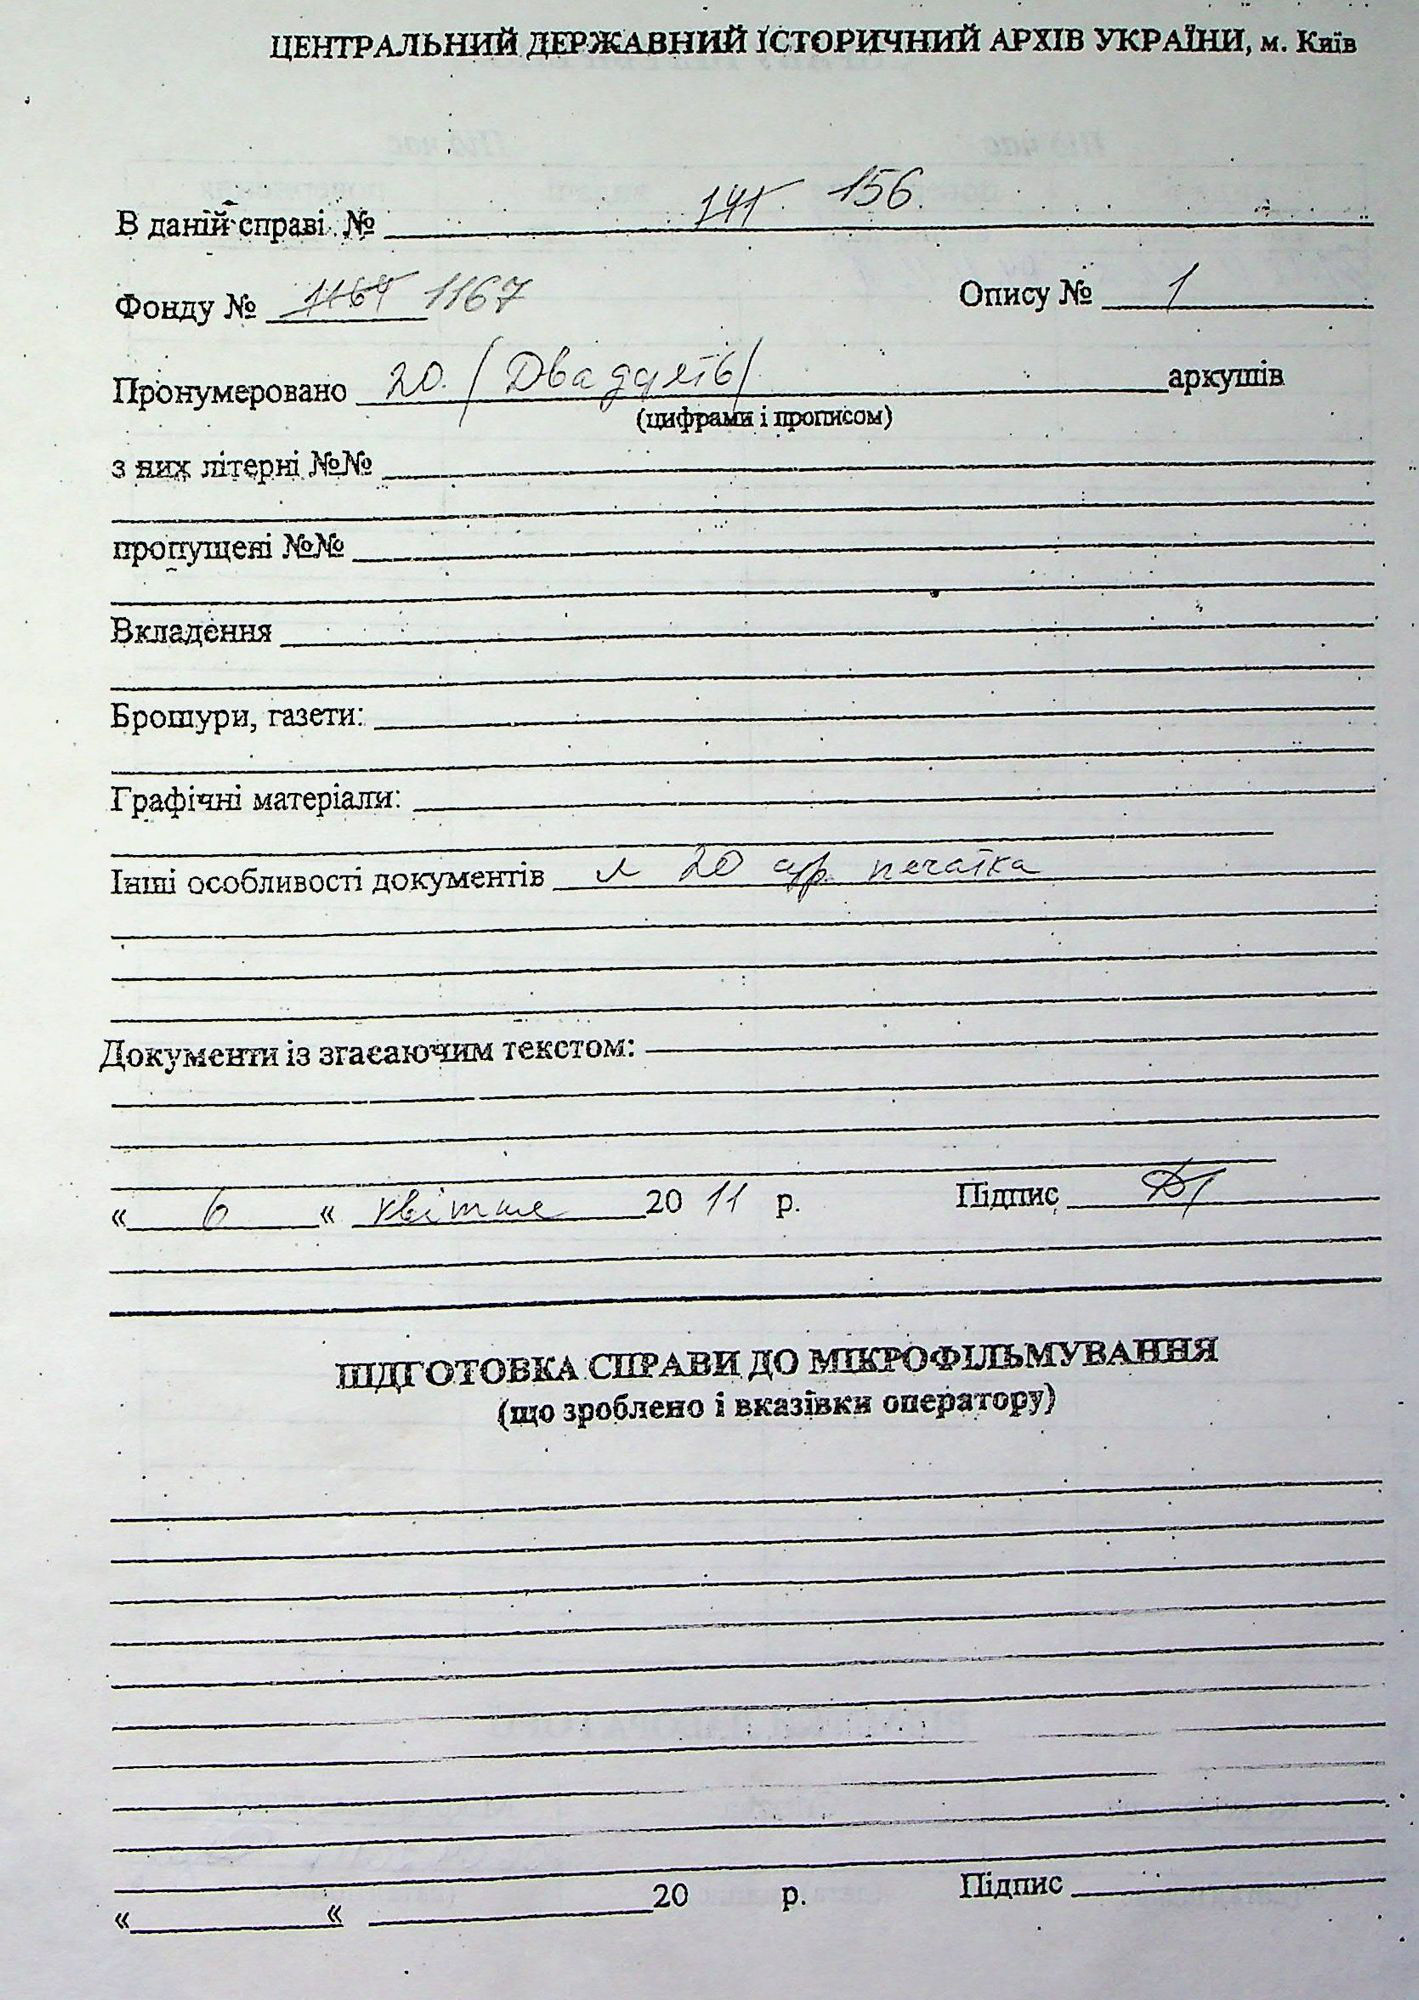 ЦЕНТРАЛЬНИЙ ДЕРЖАВНИЙ ІСТОРИЧНИЙ АРХІВ УКРАЇНИ, м. Київ
В даній справі № 141 156.
Фонду № 1164 1167 Опису № 1
Пронумеровано 20 (Двадцять) аркушів
(цифрами і прописом)
з них літерні №№
пропущені №№
Вкладення
Брошури, газети:
Графічні матеріали:
Інші особливості документів л 20 арк. печатка
Документи із згасаючим текстом:
« 6 « квітня 20 11 р. Підпис
ПІДГОТОВКА СПРАВИ ДО МІКРОФІЛЬМУВАННЯ
(що зроблено і вказівки оператору)
« « 20 р. Підпис